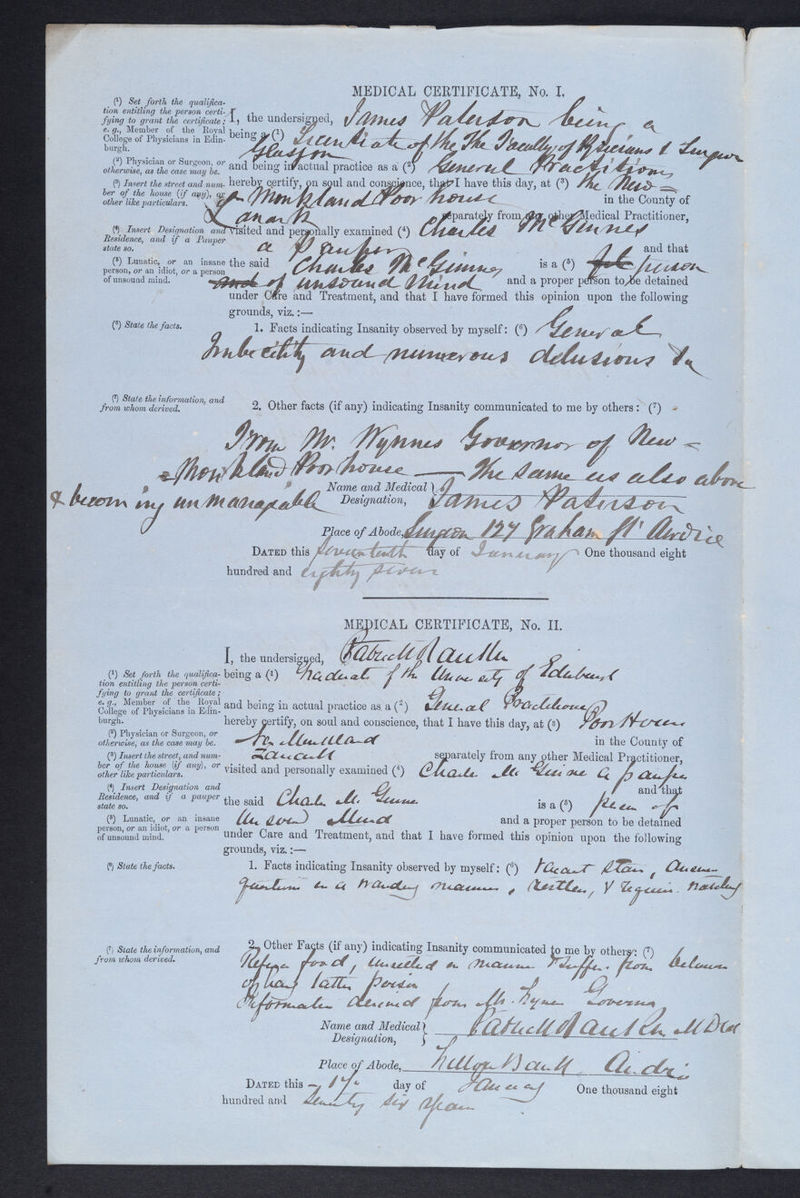 MEDICAL CERTIFICATE, No. I.
(1) Set forth the qualifica-
tion entitling the person certi-
fying to grant the certificate;
e. g., Member of the Royal
College of Physicians in Edin-
burgh.
(2) Physician or Surgeon, or
otherwise, as the case may be.
(3) Insert the street and num-
ber of the house (if any), or
other like particulars.
(4) Insert Designation and
Residence, and if a Pauper
state so.
(5) Lunatic, or an insane
person, or an idiot, or a person
of unsound mind.
(6) State the facts.
(7) State the information, and
from whom derived.
I, the undersigned, James Paterson being a
being a (1) Licentiate of the The Faculty of Physicians & Surgeons
Glasgow
and being in actual practice as a (2) General Practitioner
hereby certify, on soul and conscience, that I have this day, at (3) the New=
Monkland Poor house in the County of
Lanark separately from any other Medical Practitioner,
visited and personally examined (4) Charles McGinnes
a Pauper and that
the said Charles McGinnes is a (5) person
of unsound mind and a proper person to be detained
under Care and Treatment, and that I have formed this opinion upon the following
grounds, viz.:—
1. Facts indicating Insanity observed by myself: (6) General
Imbecility and numerous delusions
2. Other facts (if any) indicating Insanity communicated to me by others: (7)
From Mr. Wynnes Governor of New=
=Monkland Poorhouse — The same as also above
& becoming unmanagable
Name and Medical Designation, James Paterson
Place of Abode, Surgeon 127 Graham St Airdrie
DATED this seventeenth day of January One thousand eight
hundred and eighty seven
MEDICAL CERTIFICATE, No. II.
(1) Set forth the qualifica-
tion entitling the person certi-
fying to grant the certificate;
e. g., Member of the Royal
College of Physicians in Edin-
burgh.
(2) Physician or Surgeon, or
otherwise, as the case may be.
(3) Insert the street, and num-
ber of the house (if any), or
other like particulars.
(4) Insert Designation and
Residence, and if a pauper
state so.
(5) Lunatic, or an insane
person, or an idiot, or a person
of unsound mind.
(6) State the facts.
(7) State the information, and
from whom derived.
I, the undersigned, Patrick Rankin
being a (1) Graduate of the University of Edinburgh
and being in actual practice as a (2) General Practitioner
hereby certify, on soul and conscience, that I have this day, at (3) Poor House
New Monkland in the County of
Lanark separately from any other Medical Practitioner,
visited and personally examined (4) Charles McGinnes a pauper
and that
the said Charles McGinnes is a (5) person of
Unsound Mind and a proper person to be detained
under Care and Treatment, and that I have formed this opinion upon the following
grounds, viz.:—
1. Facts indicating Insanity observed by myself: (6) Vacant Stare, Answers
questions in a wandering manner, restless, & requires watching
2. Other Facts (if any) indicating Insanity communicated to me by others: (7)
Refuses food, unsettled in manner & suffers from delusions
of having taken poison
Information derived from Mr. Wynnes Governor
Name and Medical Designation, Patrick Rankin M D
Place of Abode, Bank Airdrie
DATED this 17th day of January One thousand eight
hundred and Seventy six years